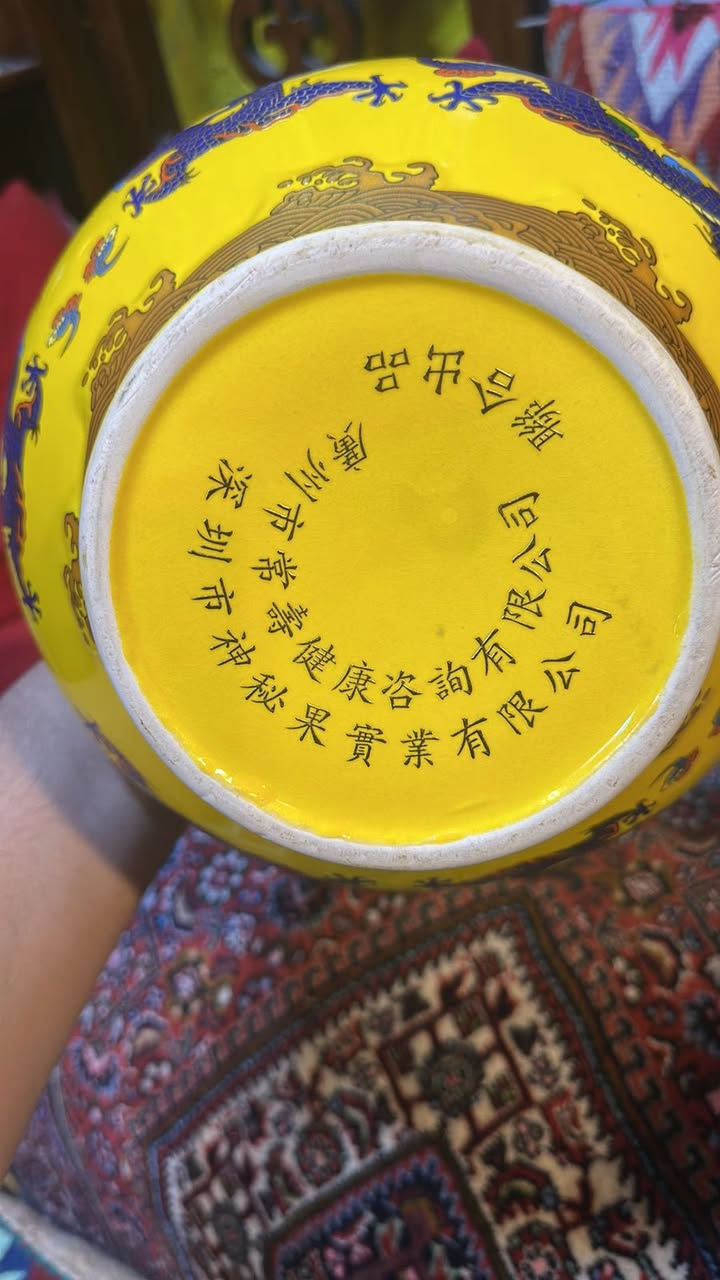 深圳市神秘果實業有限公司
廣州市常壽健康咨詢有限公司
聯合出品